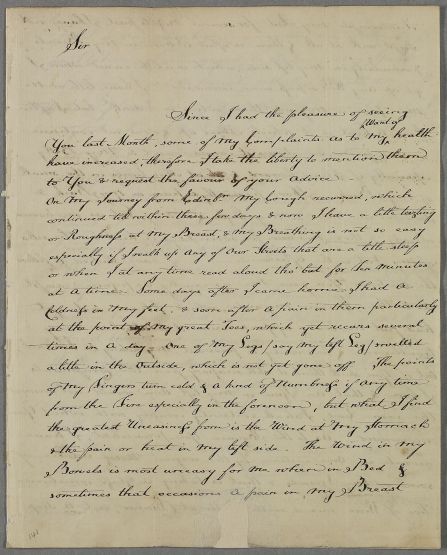 Sir
Since I had the pleasure of seeing
Want of
You last Month, some of My Complaints as to My health
have increased, therefore I take the liberty to mention them
to You & request the favour of your Advice
On My Journey from Edinbr My Cough recurred, which
continued till within these few days & now I have a little
or Roughness at My Breast, & My Breathing is not so easy
especially if I walk up Any of Our Streets that are a little steep
or when I at any time read aloud tho' but for ten Minutes
at a time. Some days after I came home I had A
Coldness in My feet, & soon after A pain in them particularly
at the point of My great Toes, which yet recurs several
times in A day. One of My Legs /say My left Leg/ swelled
a little in the Outside, which is not yet gone off The points
of My Fingers turn cold & A kind of Numbness if Any time
from the Fire especially in the forenoon, but what I find
the greatest Uneasiness from is the Wind at My Stomach
& the pain or heat in My left side. The Wind in My
Bowels is most uneasy for me when in Bed &
sometimes that occasions A pain in My Breast
141